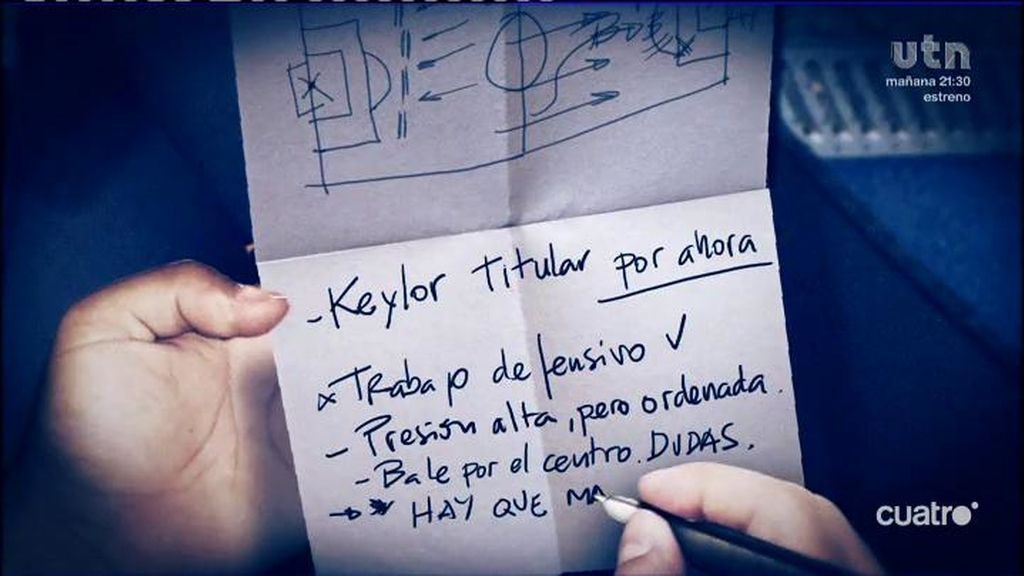 utn
mañana 21:30
estreno
- Keylor Titular por ahora
x Trabajo defensivo ✓
- Presion alta, pero ordenada.
- Bale por el centro. DUDAS.
→ * HAY QUE MA
cuatro